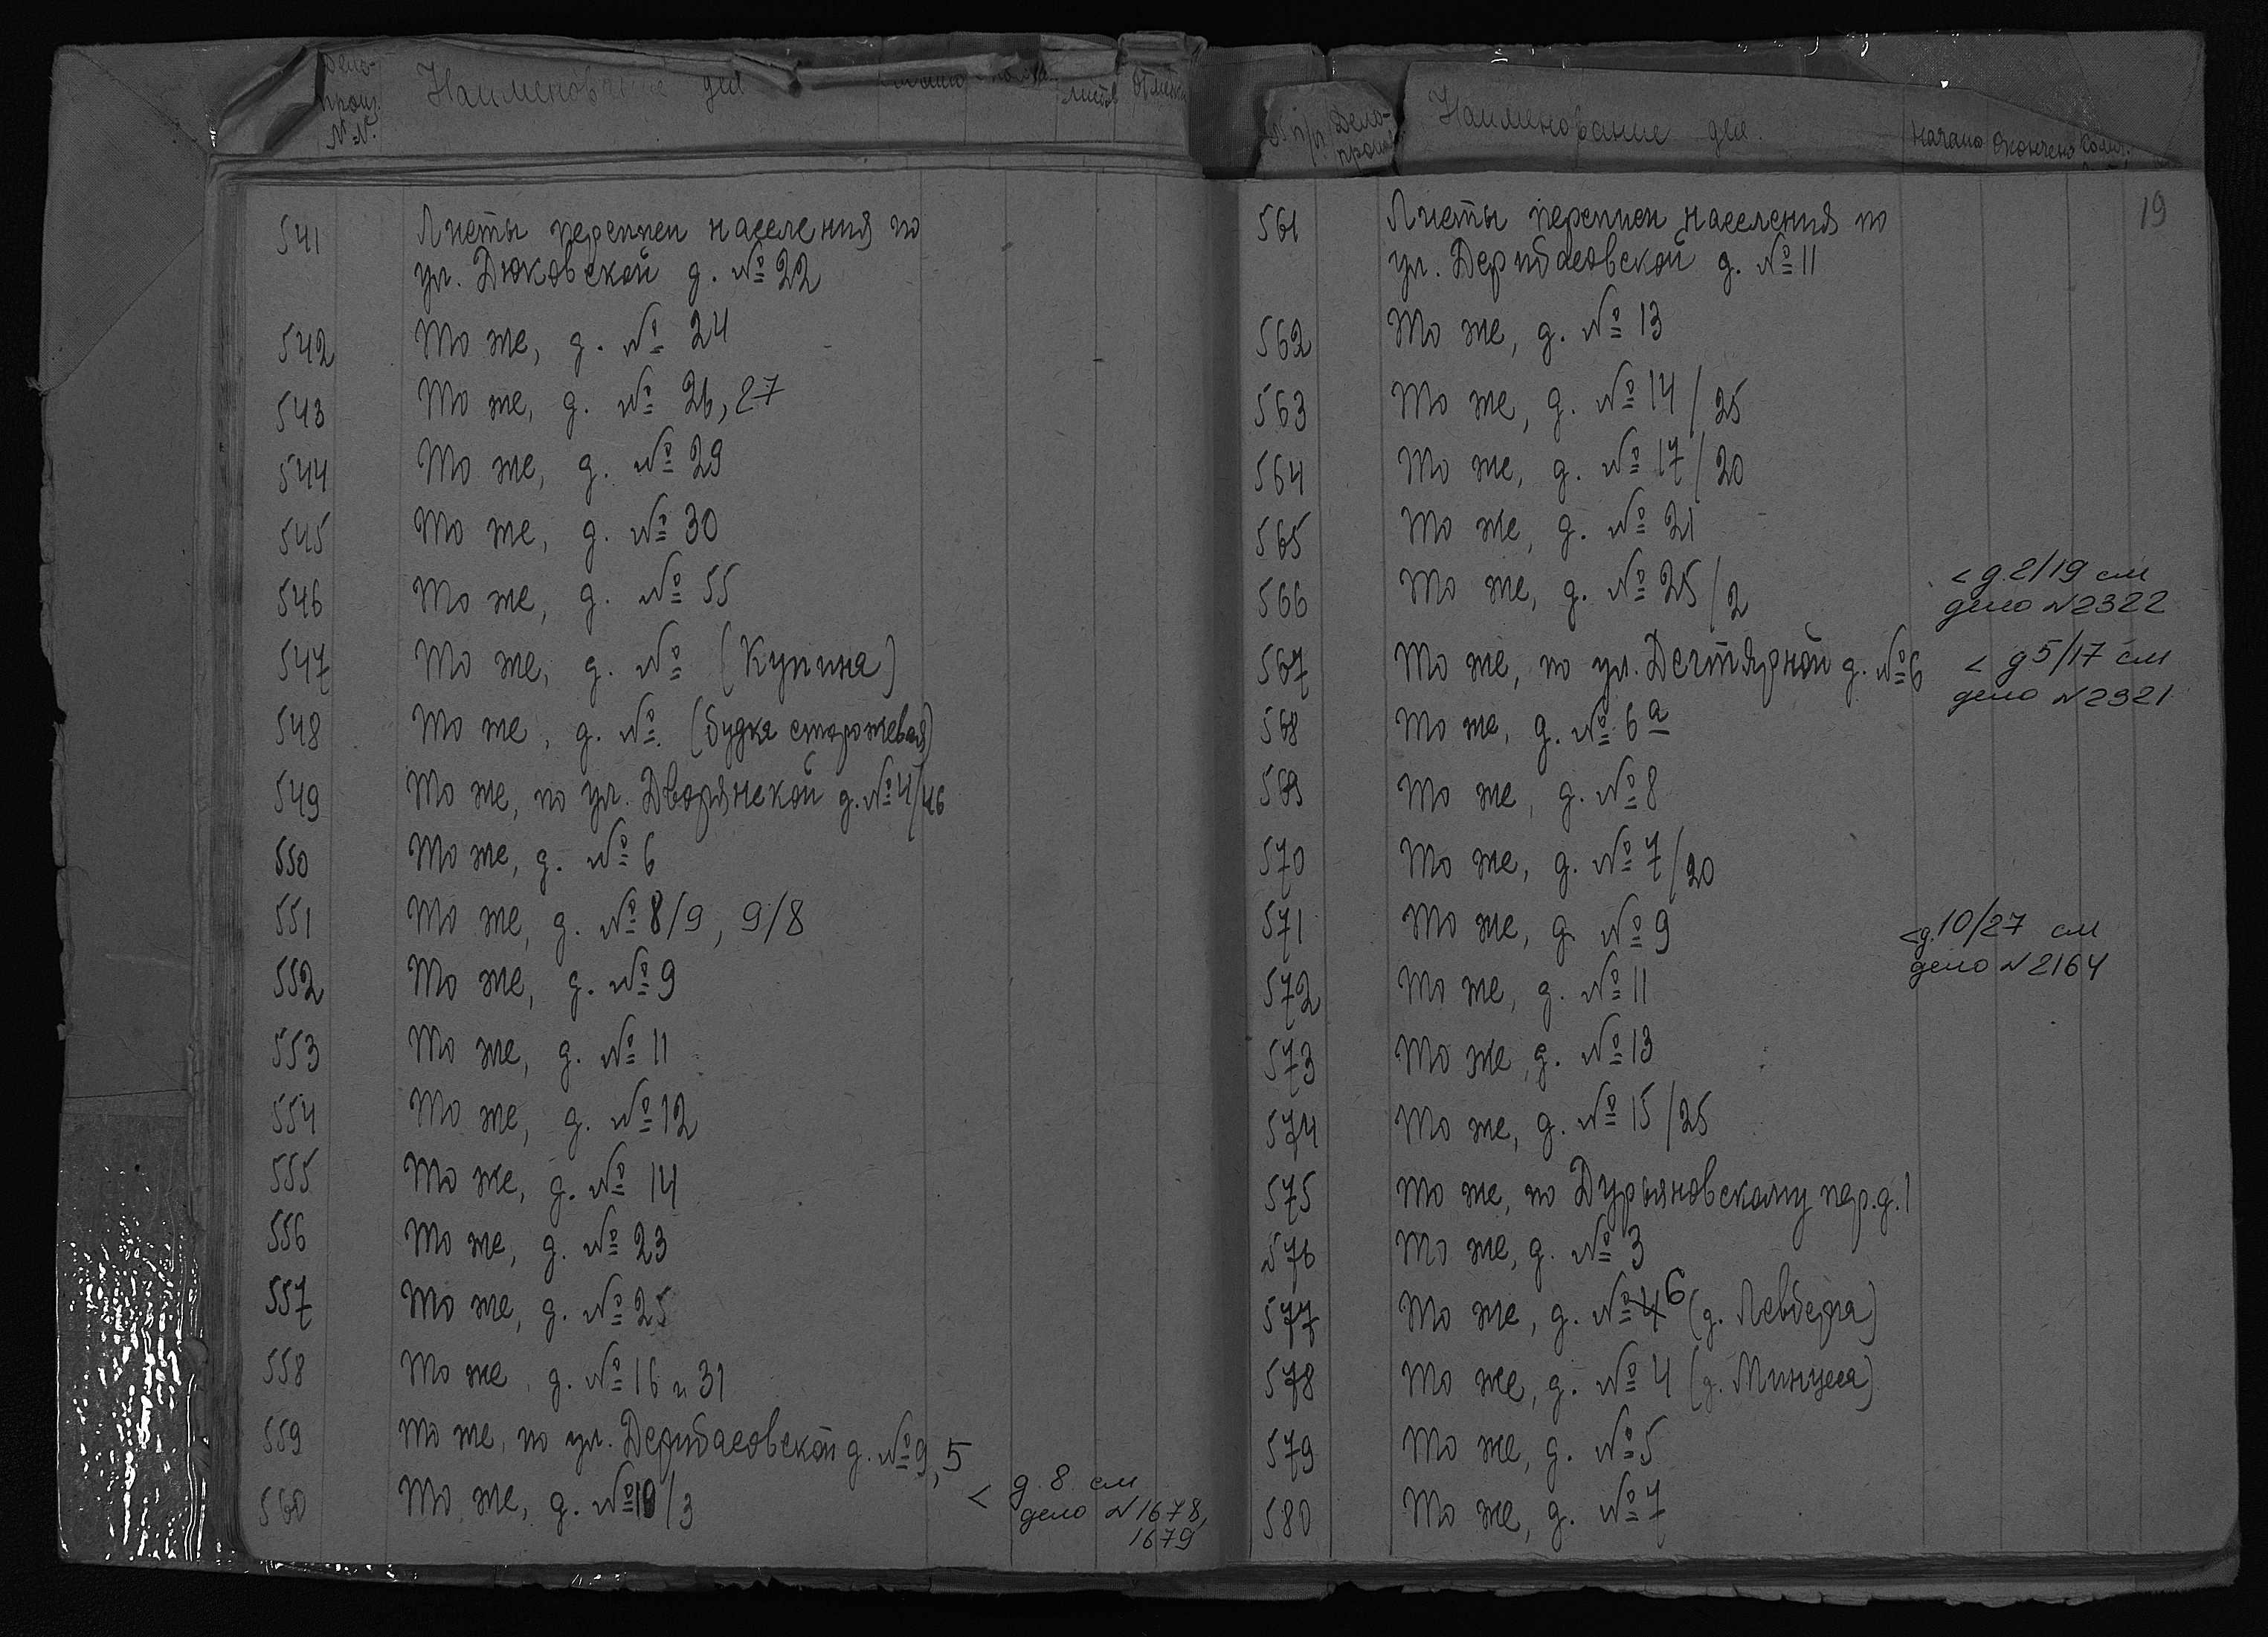 Дело-
произ.
N-N.
Наименование дел
листов
541 Листы переписи населения по
ул. Дюковской д. № 22
542 То же, д. № 24
543 То же, д. № 26, 27
544 То же, д. № 29
545 То же, д. № 30
546 То же, д. № 55
547 То же, д. № (Купина)
548 То же, д. №. (будка сторожевая)
549 То же, по ул. Дворянской д. № 4/46
550 То же, д. № 6
551 То же, д. № 8/9, 9/8
552 То же, д. № 9
553 То же, д. № 11
554 То же, д. № 12
555 То же, д. № 14
556 То же, д. № 23
557 То же, д. № 25
558 То же, д. № 16 и 31
559 То же, по ул. Дерибасовской д. № 9, 5
560 То же, д. № 10/3
< д. 8 см
дело N 1678,
1679
п/п Дело-
произ
Наименование дел.
Начало Окончено Колич.
19
561 Листы переписи населения по
ул. Дерибасовской д. № 11
562 То же, д. № 13
563 То же, д. № 14/25
564 То же, д. № 17/20
565 То же, д. № 21
566 То же, д. № 25/2
< д. 2/19 см
дело N 2322
567 То же, по ул. Дегтярной д. № 6
< д 5/17 см
дело N 2321
568 То же, д. № 6а
569 То же, д. № 8
570 То же, д. № 7/20
571 То же, д № 9
< д. 10/27 см
дело N 2164
572 То же, д. № 11
573 То же, д. № 13
574 То же, д. № 15/25
575 То же, по Дурьяновскому пер. д. 1
576 То же, д. № 3
577 То же, д. № 4 6 (д. Левбера)
578 То же, д. № 4 (д. Минуса)
579 То же, д. № 5
580 То же, д. № 7